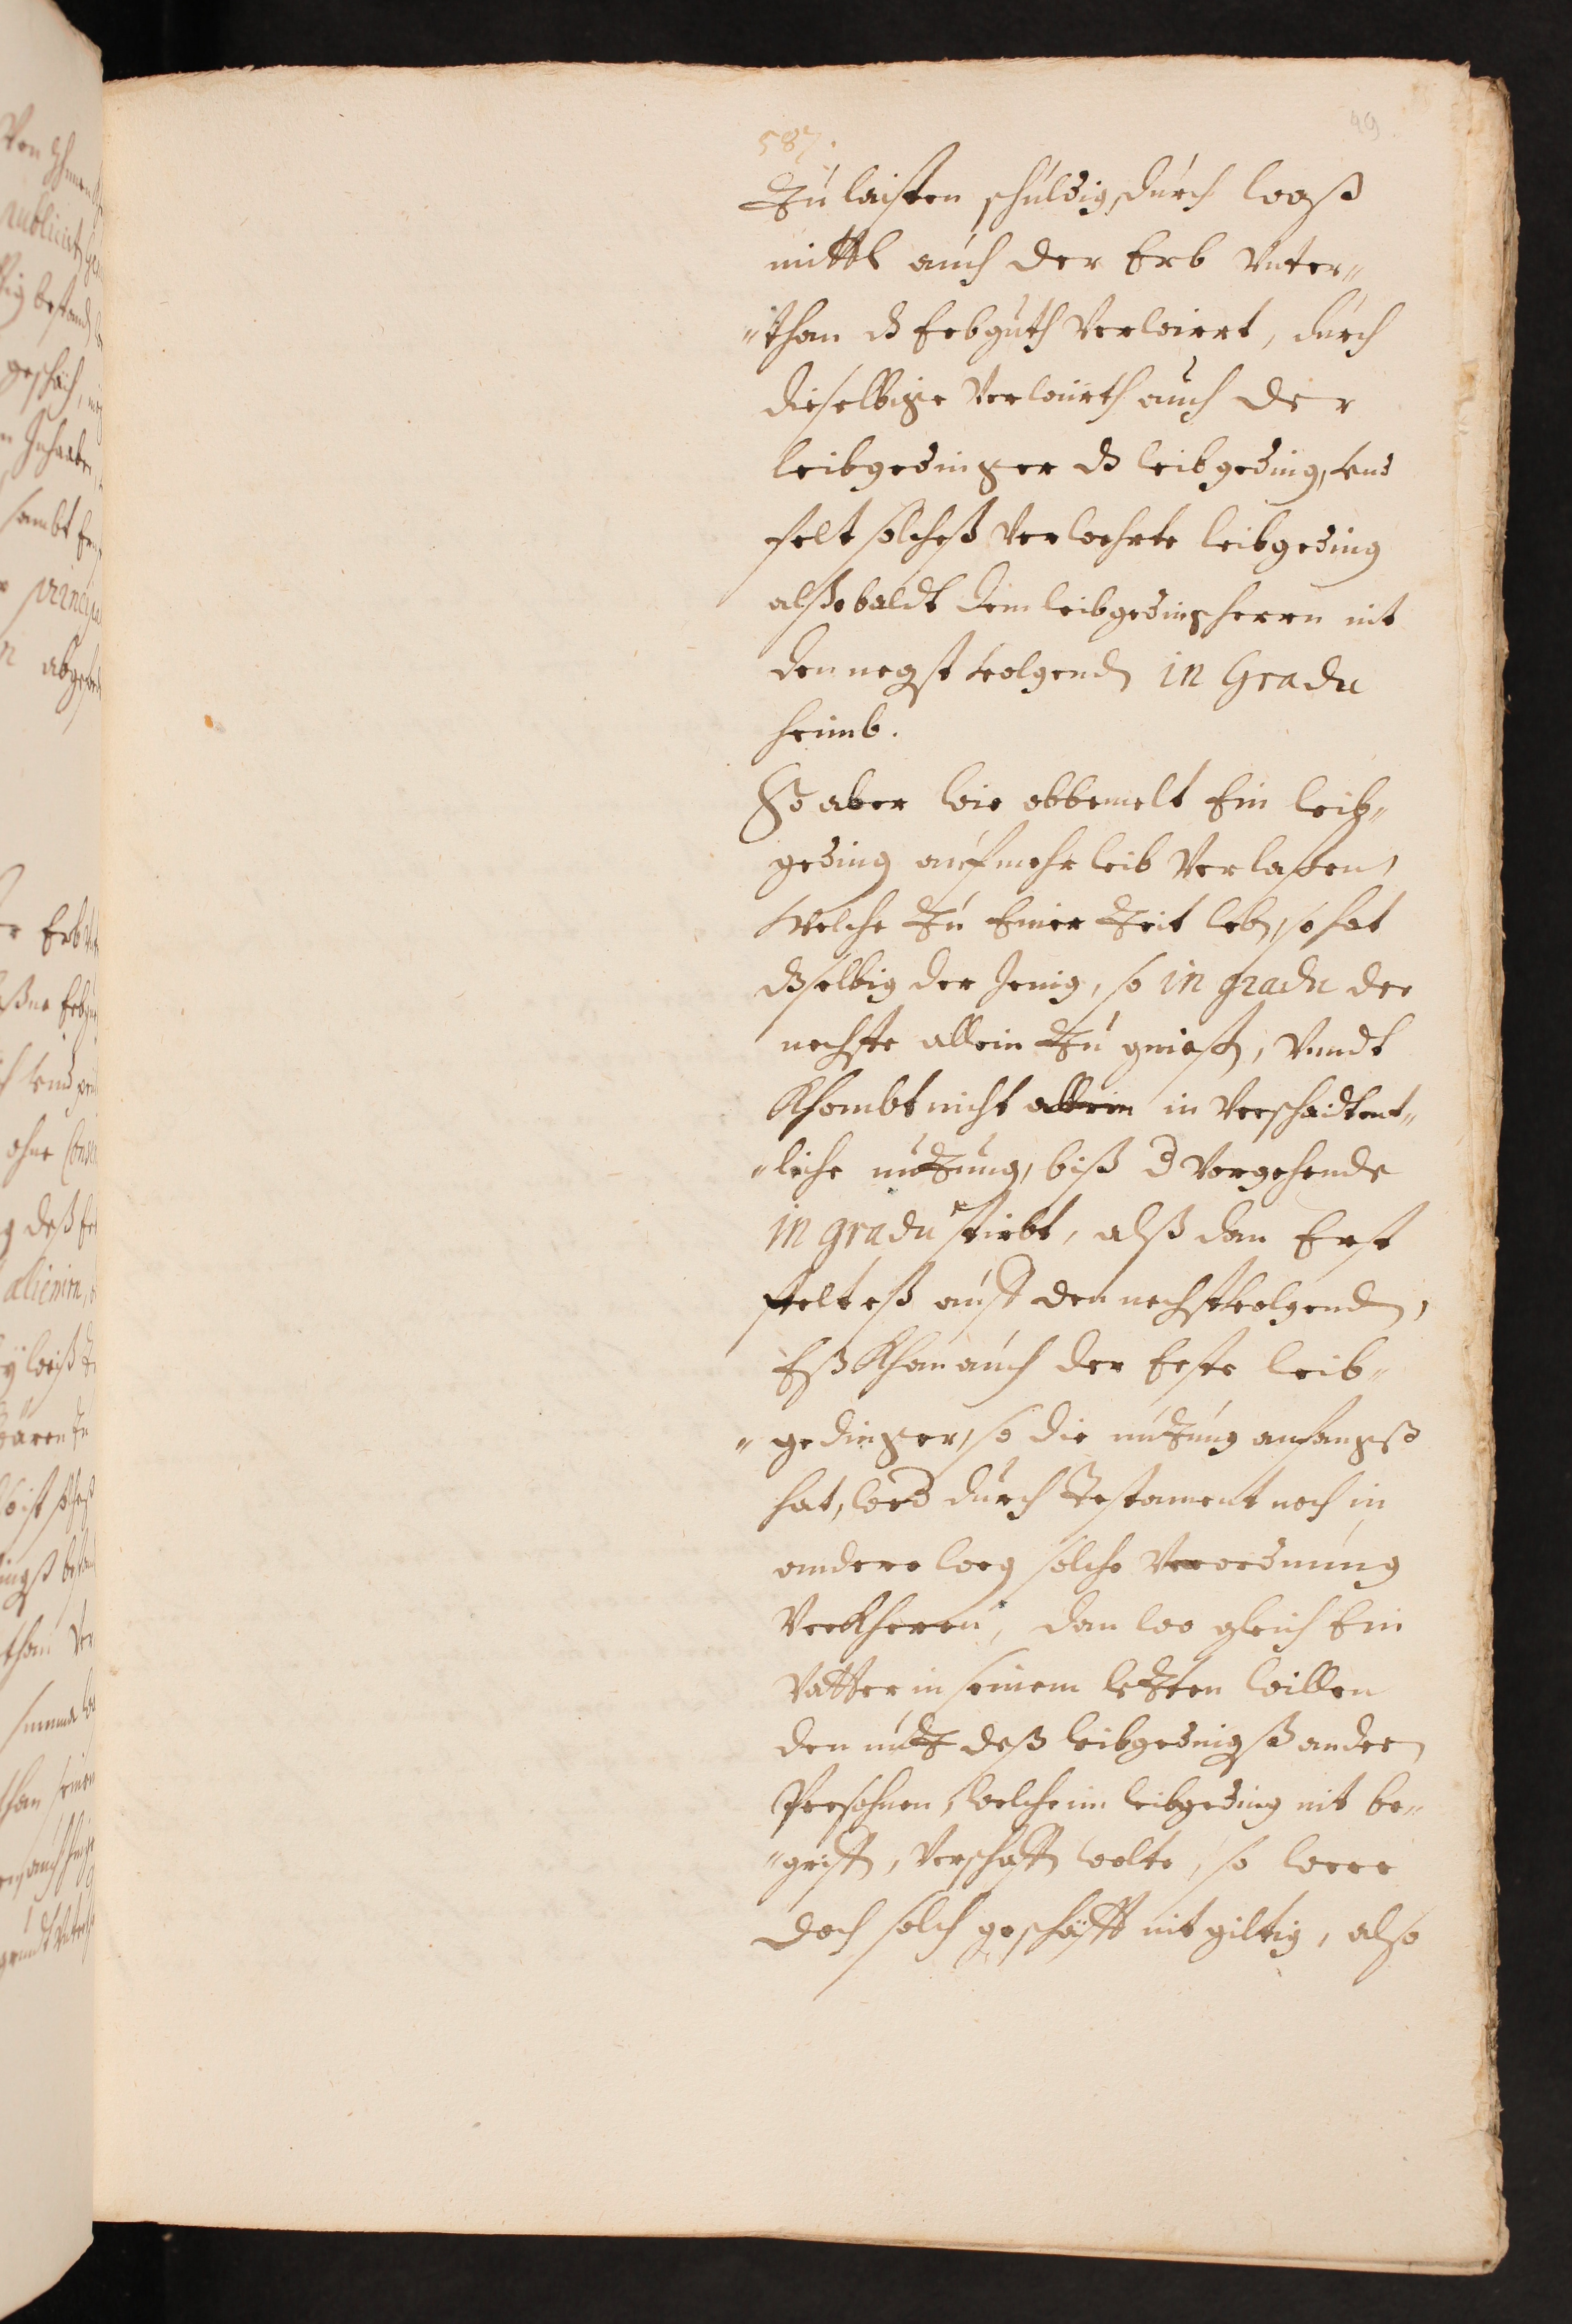 49
587.
Zu laisten schuldig, durch waß
mittl auch der Erb Vnter„
„than dß Erbguth Verwirrt, durch
dieselbige Verwürth auch der
leibgedinger dß leibgeding, vnd
felt solcheß Verwehrte leibgeding
alßobaldt dem leibgedingsherrn nit
den negst volgendn in Gradu
heimb.
So aber wie obbemelt Ein leib„
geding auf mehr leib Verlaßen,
welche Zu Einer Zeit lebn, so hat
dßelbig der Jenig, so in gradu der
nechste allein Zu gniesn, Vnndt
Khombt nicht allein in Verschaidtent„
„liche nutzung, biß d Vorgehende
in gradu stirbt, alß dan Erst
felt eß auff den nechstvolgenden,
Eß Khan auch der Erste leib„
„gedinger, so die nutzung anfangß
hat, wed durch Testament noch in
andere weg solche Verordnung
Verkheren, dan wo gleich Ein
Vatter in seinem letzten willen
den nutz deß leibgedingß andern
Persohnen, welche im leibgeding nit be„
„griffn, Verschaffn wolte, so were
doch solch geschäfft nit giltig, also